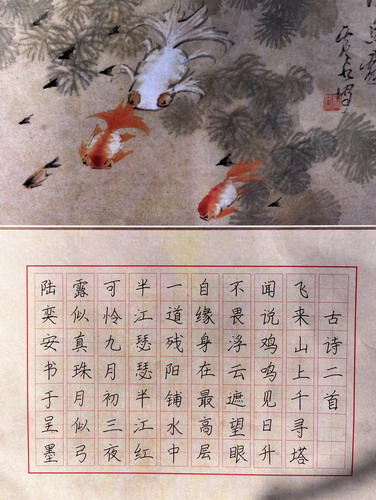 古诗二首
飞来山上千寻塔
闻说鸡鸣见日升
不畏浮云遮望眼
自缘身在最高层
一道残阳铺水中
半江瑟瑟半江红
可怜九月初三夜
露似真珠月似弓
陆奕安书于呈墨